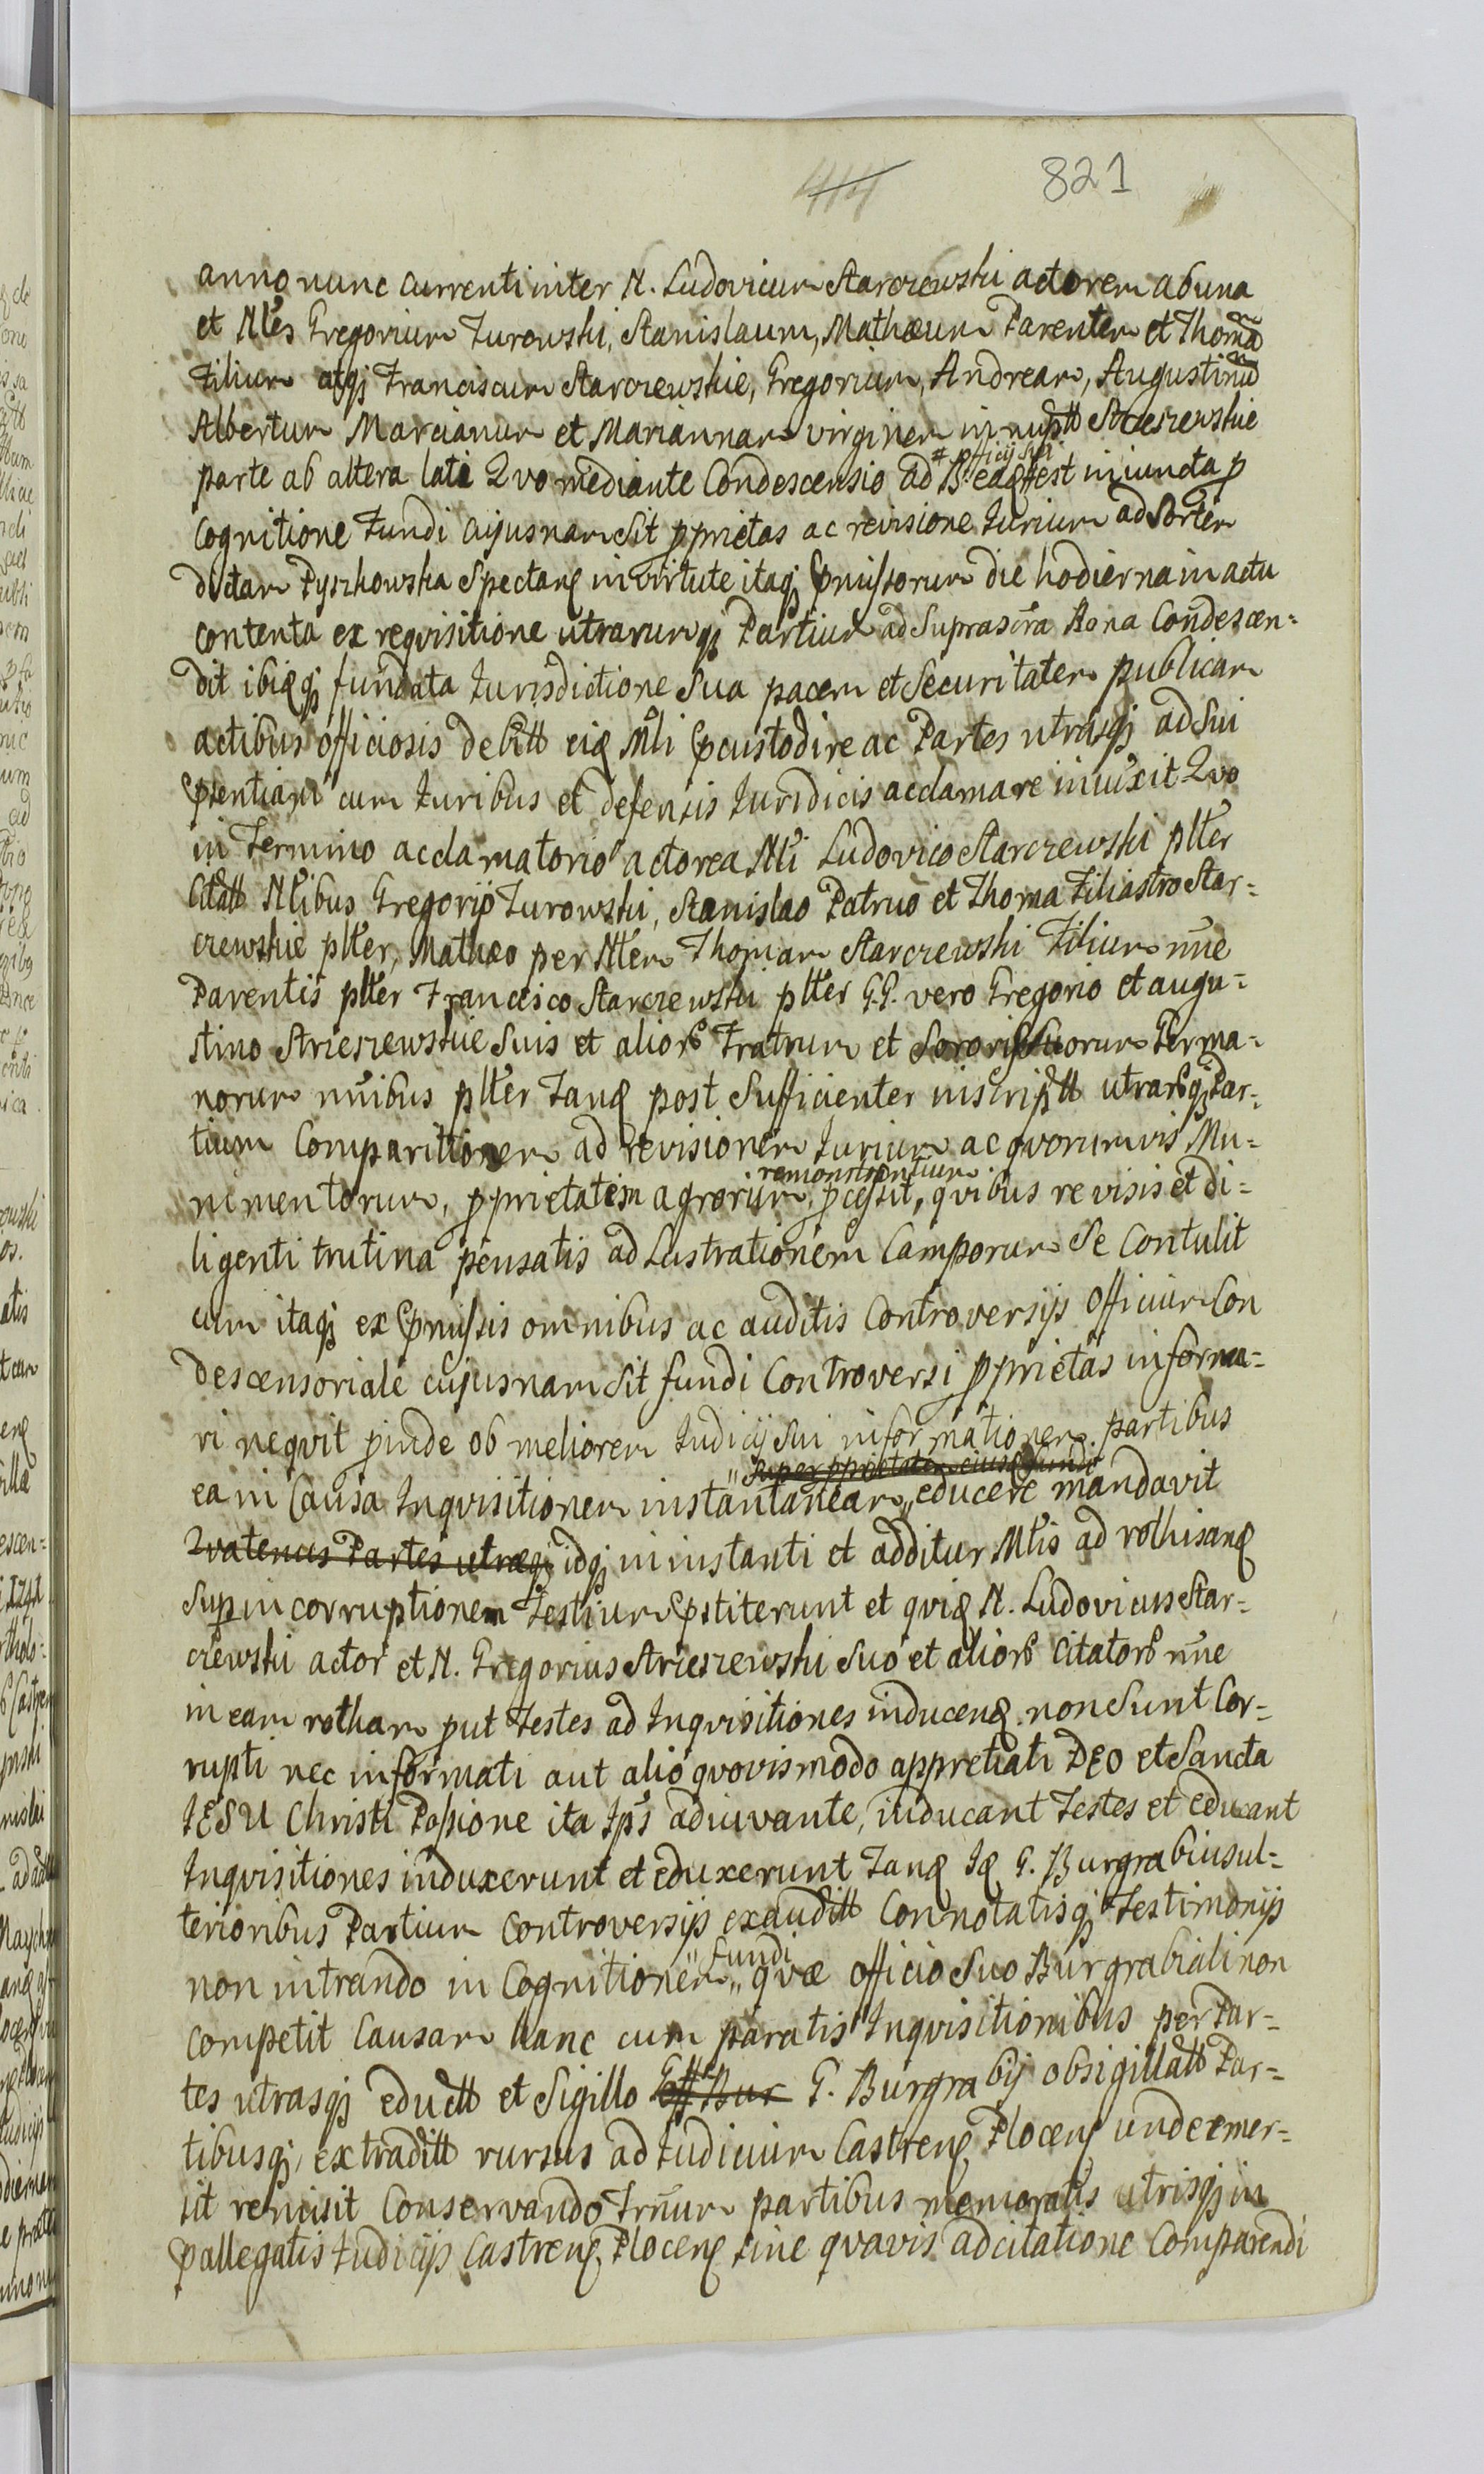 414 821
anno nunc currenti inter N. Ludovicum Starczewski actorem ab una
et Nles Gregorium Turowski, Stanislaum, Mathæum Parentem et Thomā
Filium atqȝ Franciscum Starczewskie, Gregorium, Andream, Augustinū
Albertum Marcianum et Mariannam virginem innuptt Strzeszewskie
parte ab altera lati Quo mediante Condescensio ad
officij sui
est iniuncta p
Cognitione Fundi cujusnam sit pprietas ac revisione Jurium ad Sortem
dictam Pyszkowska Spectanȩ in virtute itaqȝ pmissorum die hodierna in actu
contenta ex requisitione utrarumqȝ Partium ad suprascra Bona Condescen=
dit ibiqȝ fundata Jurisdictione Sua pacem et Securitatem publicam
actibus officiosis debitt eiȩ Mli pcustodire ac Partes utrasqȝ ad Sui
psentiam cum Juribus et defensis Juridicis acclamare iniuxit Quo
in Termino acclamatorio actorea Nli Ludovico Starczewski plter
Citatt Nlibus Gregorio Turowski, Stanislao Patruo et Thoma Filiastro Star=
czewskie plter, Mathæo per Nlem Thomam Starczewski Filium nñe
Parentis plter Francisco Starczewski plter G.G. vero Gregorio et augu=
stino Strzeszewskie Suis et alior Fratrum et Sororis Suorum Germa=
norum nñibus plter Tanȩ post Sufficienter inscriptt utrarqȝ Par=
tium Comparitionem ad revisionem Jurium ac quorumvis Mu=
remonstrantium
nimentorum, pprietatem agrorum pcessit, quibus revisis et di=
ligenti trutina pensatis ad Lustrationem Camporum Se Contulit
cum itaqȝ ex pmissis omnibus ac auditis Controversijs Officium Con
descensoriale cujusnam Sit fundi Controversi pprietas informa=
ri nequit pinde ob meliorem Judicij Sui informationem partibus
super pprietatem eiusȩ fundi
ea in Causa Inquisitionem instantaneam educere mandavit
Quatenus Partes utræqȝ idqȝ in instanti et additur Mlis ad rothisanȩ
Sup incorruptionem Testium pstiterunt et quiȩ N. Ludovicus Star=
czewski actor et N. Gregorius Strzeszewski Suo et alior Citator nñe
in eam rotham put Testes ad Inquisitiones inducenȩ non Sunt Cor=
rupti nec informati aut alio quovismodo appretiati DEO et Sancta
JESU Christi Passione ita Ips adiuvante, inducant Testes et educant
Inquisitiones induxerunt et eduxerunt Tanȩ Iȩ G. Burgrabius ul=
terioribus Partium Controversijs exauditt Connotatisqȝ Testimonijs
fundi
non intrando in Cognitionem quæ officio Suo Burgrabiali non
Competit Causam hanc cum paratis Inquisitionibus per Par=
tes utrasqȝ eductt et Sigillo Bur G. Burgrabij obsigillatt Par=
tibusqȝ extraditt rursus ad Judicium Castrenȩ Plocenȩ unde emer=
sit remisit Conservando Trnum partibus memoratis utrisqȝ in
pallegatis Judicijs Castrenȩ Plocenȩ sine quavis adcitatione Comparendi